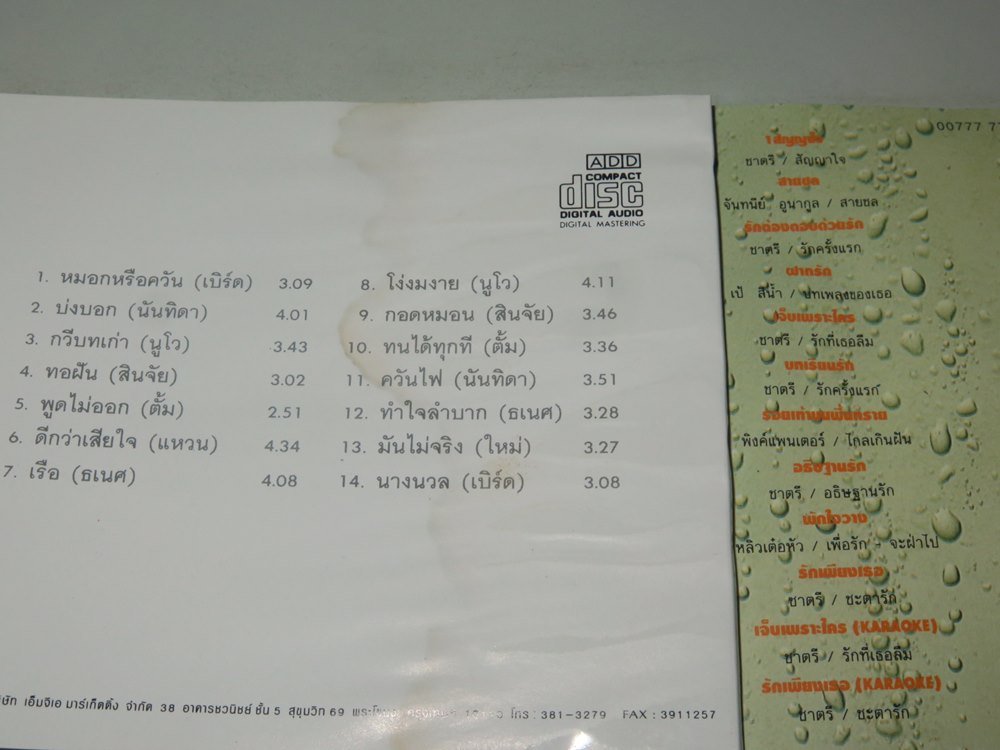 ADD
COMPACT
disc
DIGITAL AUDIO
DIGITAL MASTERING
1. หมอกหรือควัน (เบิร์ด) 3.09
2. บ่งบอก (นันทิดา) 4.01
3. กวีบทเก่า (นูโว) 3.43
4. ทอฝัน (สินจัย) 3.02
5. พูดไม่ออก (ตั้ม) 2.51
6. ดีกว่าเสียใจ (แหวน) 4.34
7. เรือ (ธเนศ) 4.08
8. โง่งมงาย (นูโว) 4.11
9. กอดหมอน (สินจัย) 3.46
10. ทนได้ทุกที (ตั้ม) 3.36
11. ควันไฟ (นันทิดา) 3.51
12. ทำใจลำบาก (ธเนศ) 3.28
13. มันไม่จริง (ใหม่) 3.27
14. นางนวล (เบิร์ด) 3.08
เอ็มจีเอ มาร์เก็ตติ้ง จำกัด 38 อาคารชวนิชย์ ชั้น 5 สุขุมวิท 69 โทร : 381-3279 FAX : 3911257
00777
ชาตรี / สัญญาใจ
สายชล
จันทนีย์ อูนากูล / สายชล
ชาตรี / รักครั้งแรก
ฝากรัก
เป้ สีน้ำ / บทเพลงของเธอ
เจ็บเพราะใคร
ชาตรี / รักที่เธอลืม
บทเรียนรัก
ชาตรี / รักครั้งแรก
รอยเท้าบนผืนทราย
พิงค์แพนเตอร์ / ไกลเกินฝัน
อธิษฐานรัก
ชาตรี / อธิษฐานรัก
พักใจวาง
หลิวเต๋อหัว / เพื่อรัก - จะฝ่าไป
รักเพียงเธอ
ชาตรี / ชะตารัก
เจ็บเพราะใคร (KARAOKE)
ชาตรี / รักที่เธอลืม
รักเพียงเธอ (KARAOKE)
ชาตรี / ชะตารัก